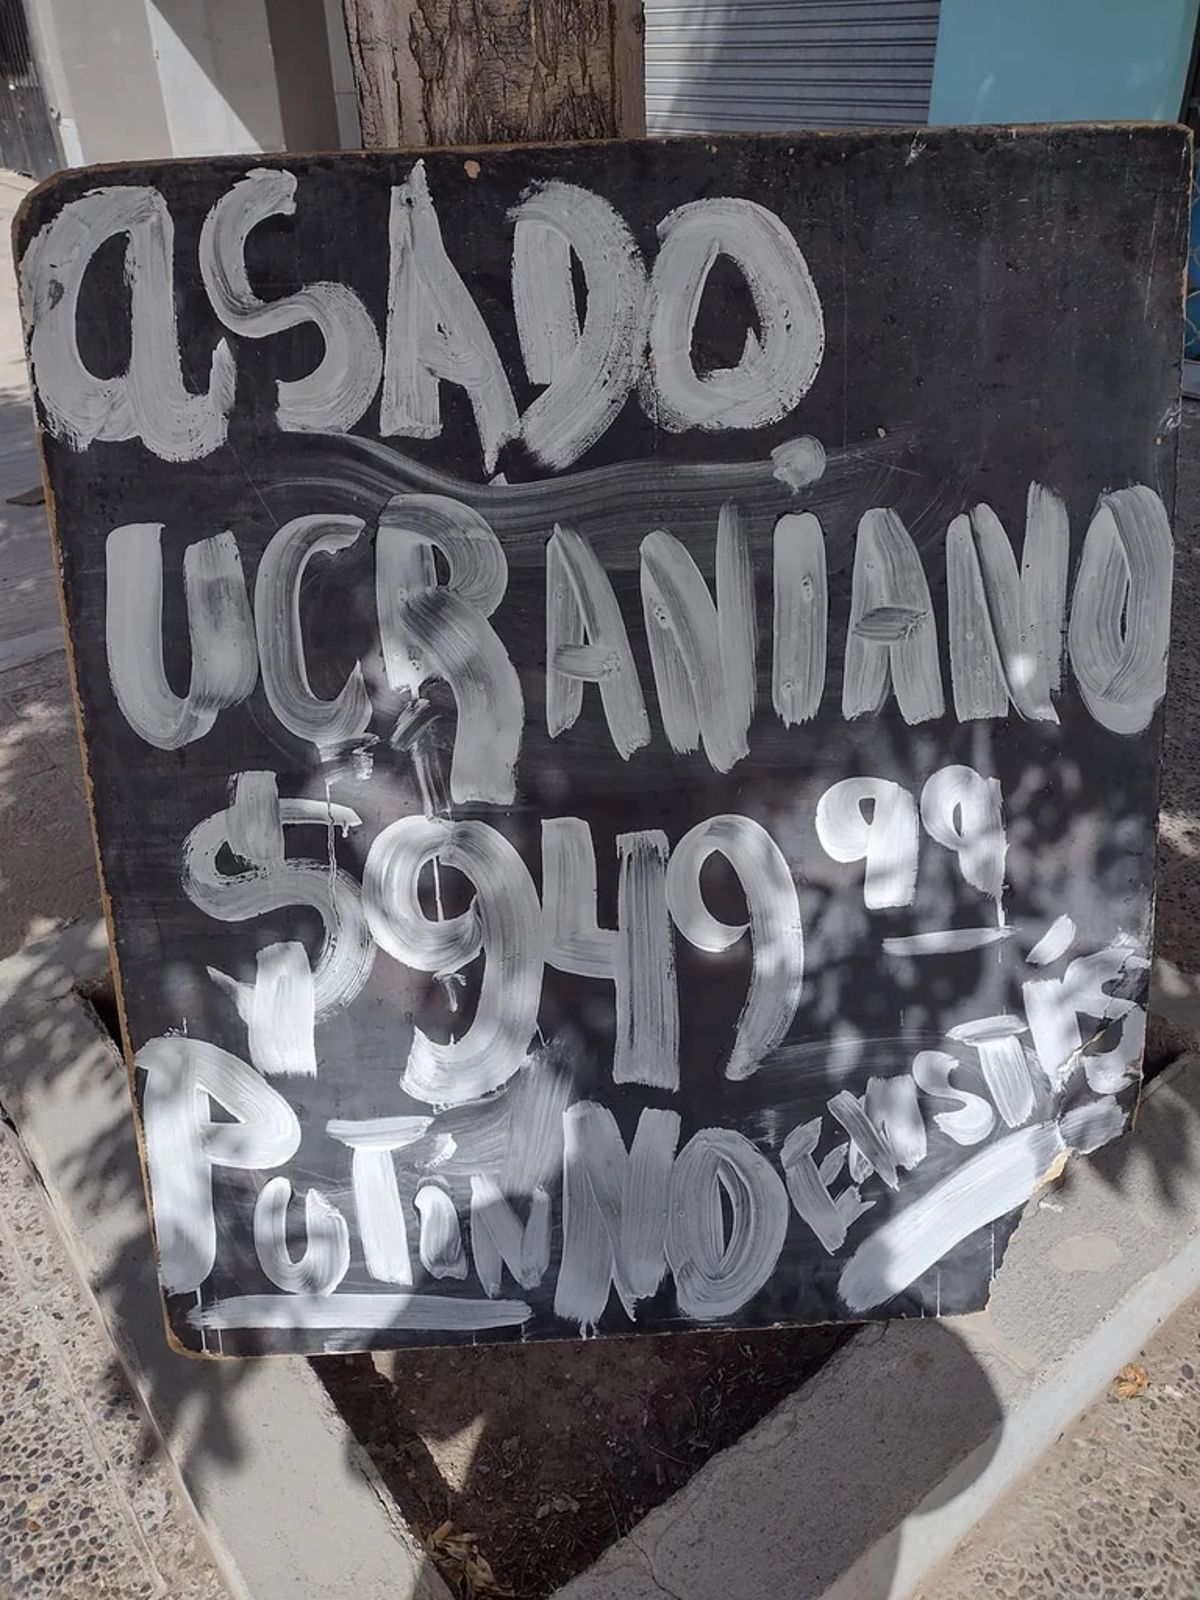 aSADO
UCRANiANO
$949 99
PUTiN NO EXISTÍS